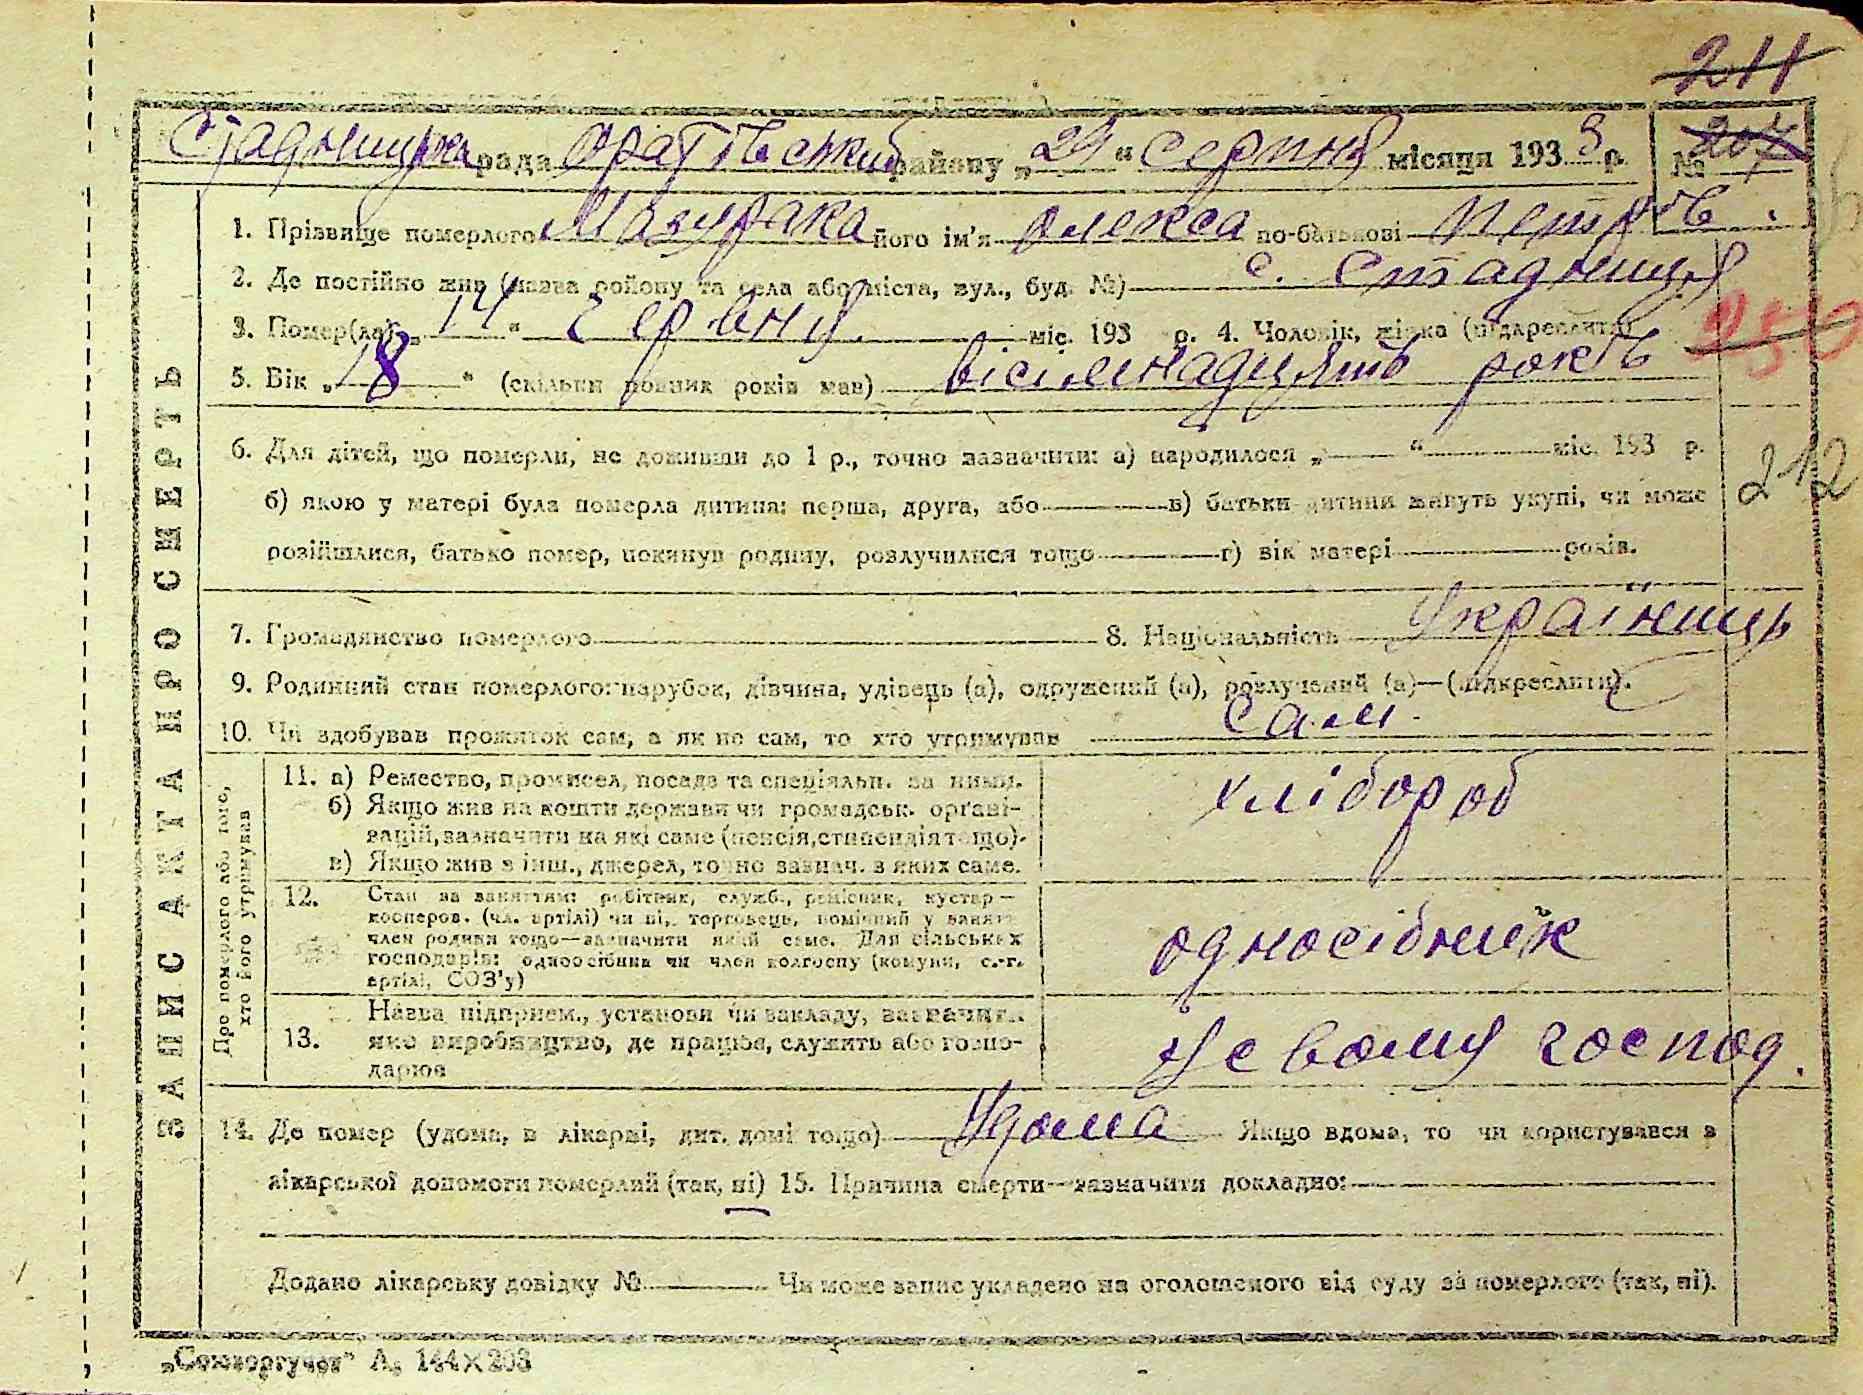 211
Стадницька рада Оратівський району „24“ серпня місяця 1933 р. № 207
1. Прізвище померлого Мазурака його ім'я Олекса по-батькові Петров.
2. Де постійно жив (назва району та села або міста, вул., буд. №) с. Стадниця
3. Помер(ла) „14“ червня міс. 193 р. 4. Чоловік, жінка (підкреслити)
250
5. Вік „18“ (скільки повних років мав) вісімнадцять років
6. Для дітей, що померли, не доживши до 1 р., точно зазначити: а) народилося „ “ міс. 193 р.
212
б) якою у матері була померла дитина: перша, друга, або в) батьки дитини живуть укупі, чи може
розійшлися, батько помер, покинув родину, розлучилися тощо г) вік матері років.
7. Громадянство померлого 8. Національність Українець
9. Родинний стан померлого: парубок, дівчина, удівець (а), одружений (а), розлучений (а)—(підкреслити).
10. Чи здобував прожиток сам, а як не сам, то хто утримував сам.
ЗАПИС АКТА ПРО СМЕРТЬ
Про померлого або того,
хто його утримував
11. а) Ремество, промисел, посада та спеціяльн. за ними.
б) Якщо жив на кошти держави чи громадськ. органі-
зацій, зазначити на які саме (пенсія, стипендія тощо).
в) Якщо жив з інш., джерел, точно зазнач. з яких саме.
хлібороб
12. Стан за заняттям: робітник, служб., ремісник, кустар—
косперов. (чл. артілі) чи ні, торговець, помічний у занят.
член родини тощо—зазначити який саме. Для сільських
господарів: одноосібник чи член колгоспу (комуни, с.-г.
артілі, СОЗ'у)
односібник
13. Назва підприєм., установи чи закладу, зазначити
яке виробництво, де працює, служить або госпо-
дарює
У свому господ.
14. Де помер (удома, в лікарні, дит. домі тощо) Удома Якщо вдома, то чи користувався з
лікарської допомоги померлий (так, ні) 15. Причина смерти—зазначити докладно:
Додано лікарську довідку № Чи може запис укладено на оголошеного від суду за померлого (так, ні).
„Союзоргучот" А5 144×203